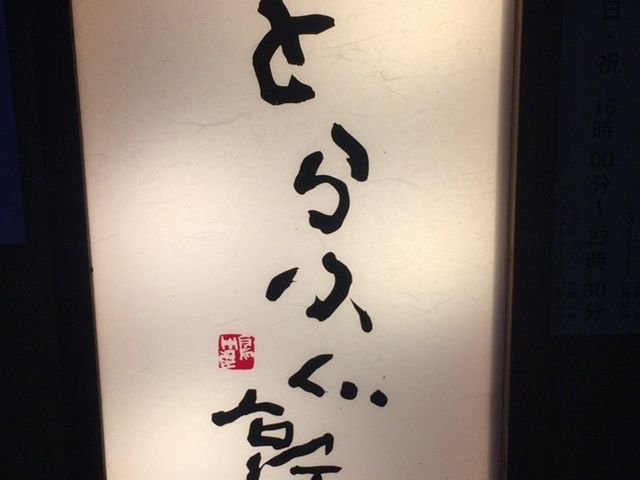 とらふぐ亭
日・祝 16時00分～23時30分